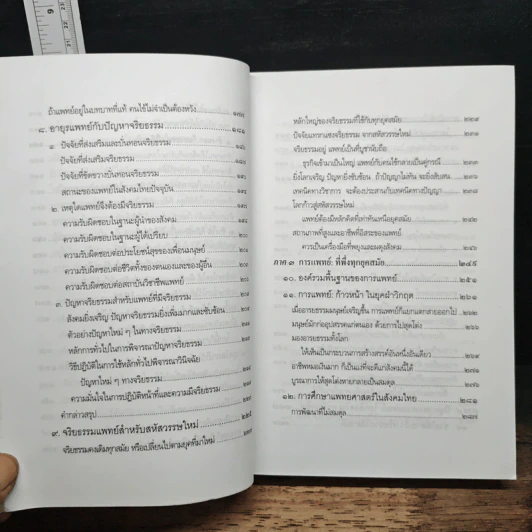 6
ถ้าแพทย์อยู่ในบทบาทที่แท้ คนไข้ไม่จำเป็นต้องหวัง
๘. อายุรแพทย์กับปัญหาจริยธรรม
๑. ปัจจัยที่ส่งเสริมและบั่นทอนจริยธรรม
ปัจจัยที่ส่งเสริมจริยธรรม
ปัจจัยที่ขัดขวางบั่นทอนจริยธรรม
สถานะของแพทย์ในสังคมไทยปัจจุบัน
๒. เหตุใดแพทย์จึงต้องมีจริยธรรม
ความรับผิดชอบในฐานะผู้นำของสังคม
ความรับผิดชอบในฐานะผู้ได้เปรียบ
ความรับผิดชอบต่อประโยชน์สุขของเพื่อนมนุษย์
ความรับผิดชอบต่อชีวิตทั้งของตนเองและของผู้อื่น
ความรับผิดชอบต่อสถาบันวิชาชีพแพทย์
๓. ปัญหาจริยธรรมสำหรับแพทย์ที่มีจริยธรรม
สังคมยิ่งเจริญ ปัญหาจริยธรรมยิ่งเพิ่มมากและซับซ้อน
ตัวอย่างปัญหาใหม่ ๆ ในทางจริยธรรม
หลักการทั่วไปในการพิจารณาปัญหาจริยธรรม
วิธีปฏิบัติในการใช้หลักทั่วไปพิจารณาวินิจฉัย
ปัญหาใหม่ ๆ ทางจริยธรรม
ความมั่นใจในการปฏิบัติหน้าที่และความมีจริยธรรม
คำกล่าวสรุป
๙. จริยธรรมแพทย์สำหรับสหัสวรรษใหม่
จริยธรรมคงเดิมทุกสมัย หรือเปลี่ยนไปตามยุคที่มาใหม่
หลักใหญ่ของจริยธรรมที่ใช้กับทุกยุคสมัย ๒๒๙
ปัจจัยแทรกแซงจริยธรรม จากสหัสวรรษใหม่
จริยธรรมอยู่ แพทย์เป็นที่บูชานับถือ
ธุรกิจเข้ามาเป็นใหญ่ แพทย์กับคนไข้กลายเป็นคู่กรณี
ยิ่งโลกเจริญ ปัญหายิ่งซับซ้อน ถ้าปัญญาไม่ทัน จะยิ่งสับสน
เทคนิคทางวิชาการ จะต้องประสานกับเทคนิคทางปัญญา
โลกก้าวสู่สหัสวรรษใหม่
แพทย์ต้องมีหลักคิดที่เท่าทันเหนือยุคสมัย ๒๔๒
สถานภาพที่สูงและอาชีพที่อิสระของแพทย์
ควรเป็นเครื่องมือที่พยุงและผดุงสังคม ๒๔๖
ภาค ๓ การแพทย์: ที่พึ่งทุกยุคสมัย ๒๔๙
๑๐. องค์รวมพื้นฐานของการแพทย์
๑๑. การแพทย์: ก้าวหน้า ในยุคฝ่าวิกฤต
เมื่ออารยธรรมมนุษย์เจริญขึ้น การแพทย์ก็แยกแตกสายออกไป
มนุษย์มักก่ออุปสรรคแก่ตนเอง ด้วยการไปสุดโต่ง
มองอารยธรรมทั้งโลก
ให้เห็นเป็นกระบวนการสร้างสรรค์อันหนึ่งอันเดียว
อาชีพหมอเป็นมา ก็เป็นแง่ที่จะคิดแก่สังคมนี้ได้
บูรณาการให้สุดโต่งหายกลายเป็นสมดุล
๑๒. การศึกษาแพทยศาสตร์ในสังคมไทย ๒๘๑
การพัฒนาที่ไม่สมดุล